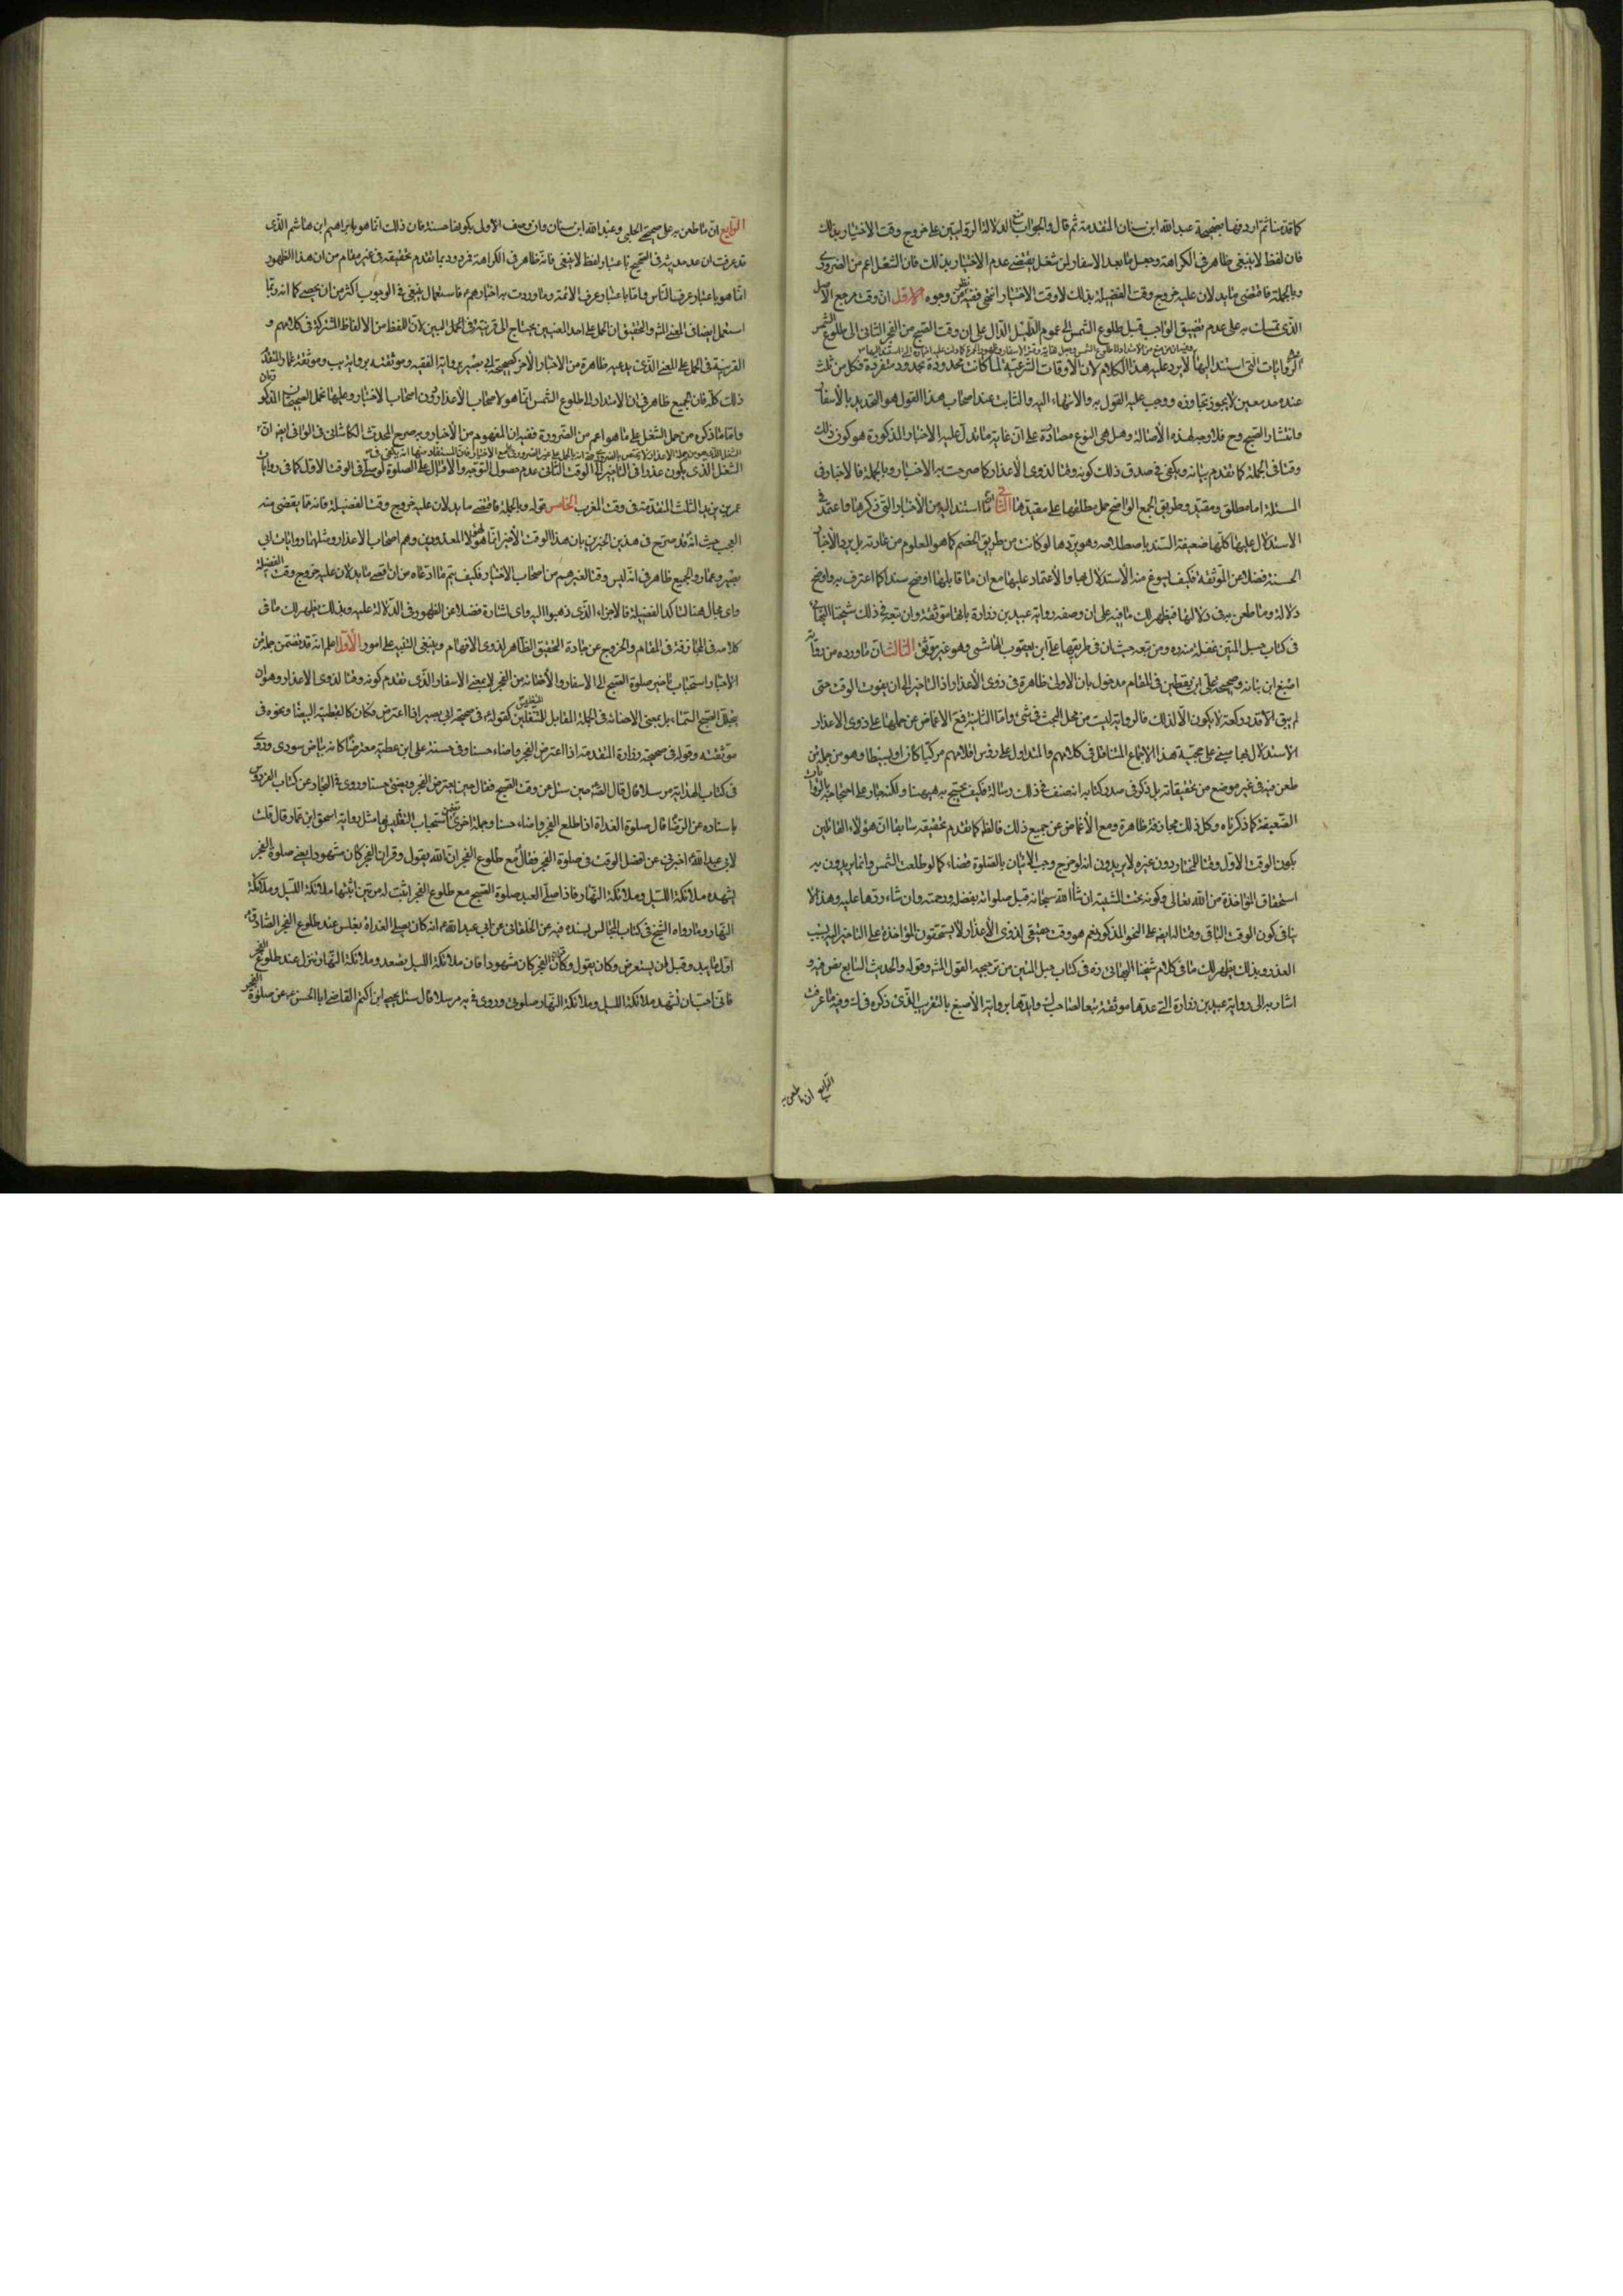 كما قدمنا ثم اردفها بصحيحة عبد الله ابن سنان المتقدمة ثم قال والجواب منع الدلالة الروايتين على خروج وقت الاختيار بذلك
فان لفظ لا ينبغي ظاهر في الكراهة وجعل ما بعد الاسفار لمن شغل يقتضي عدم الاختيار بذلك فان الشغل اعم من الضروري
وبالجملة فاقصى ما يدلان عليه خروج وقت الفضيلة بذلك لا وقت الاختيار انتهى ففيه نظر من وجوه الاول ان مرجع الاصل
الذي تمسك به على عدم تضييق الواجب قبل طلوع الشمس الى عموم الدليل الدال على ان وقت الصبح من الفجر الثاني الى طلوع الشمس
الروايات التي استند اليها لا يرد عليه هذا الكلام لان الاوقات الشرعية لما كانت محدودة بحدود متفرقة فكل من ثبت
عنده حد معين لا يجوز تجاوزه ووجب عليه القول به والانتهاء اليه والثابت عند اصحاب هذا القول هو التحديد بالاسفار
وانتشار الصبح وح فلا وجه لهذه الاصالة وهل هي النوع مصادرة على ان غاية ما تدل عليه الاخبار المذكورة هو كون ذلك
وقتا في الجملة كما تقدم بيانه ويكفي في صدق ذلك كونه وقتا لذوي الاعذار كما صرحت به الاخبار وبالجملة فالاخبار في
المسئلة اما مطلق ومقيد وطريق الجمع الواضح حمل مطلقها على مقيدها الثاني ان ما استند اليه من الاخبار التي ذكرها واعتمد في
الاستدلال عليها كلها ضعيفة السند باصطلاحه وهو يردها لو كانت من طريق الخصم كما هو المعلوم من عادته بل يرد الاخبار
الحسنة فضلا عن الموثقة فكيف يسوغ منه الاستدلال بها والاعتماد عليها مع ان ما قابلها اوضح سندا كما اعترف به واوضح
دلالة وما طعن به في دلالتها فيظهر لك ما فيه على ان وصفه رواية عبيد بن زرارة بانها موثقة وان تبعه في ذلك شيخنا البهائي
في كتاب حبل المتين غفلة منه ره ومن تبعه حيث ان في طريقها علي ابن يعقوب الهاشمي وهو غير موثق الثالث ان ما اورده من رواية
اصبغ ابن نباته وصحيحة علي ابن يقطين في المقام مدخول بان الاولى ظاهرة في ذوي الاعذار اذ التاخير الى ان يفوت الوقت حتى
لم يبق الا قدر ركعة لا يكون الا لذلك فالرواية ليست من محل البحث في شئ واما الثانية فمع الاغماض عن حملها على ذوي الاعذار
الاستدلال بها مبني على حجية هذا الاجماع المتناقل في كلامهم والمتداول على رؤس اقلامهم مركبا كان او بسيطا وهو من جملة من
طعن فيه في غير موضع من تحقيقاته بل ذكر في صدر كتابه انه صنف في ذلك رسالة فكيف يحتج به هيهنا ولكنه جار على احتجاجه بالروايات
الضعيفة كما ذكرناه وكل ذلك مجازفة ظاهرة ومع الاغماض عن جميع ذلك فالظ كما تقدم تحقيقه سابقا ان هؤلاء القائلين
بكون الوقت الاول وقتا للمختار دون غيره لا يريدون انه لو خرج وجب الاتيان بالصلوة قضاء كما لو طلعت الشمس وانما يريدون به
استحقاق المؤاخذة من الله تعالى وكونه تحت المشية ان شاء الله سبحانه قبل صلواته بفضله ورحمته وان شاء ردها عليه وهذا لا
ينافي كون الوقت الباقي وقتا لها بقية على النحو المذكور نعم هو وقت حقيقي لذوي الاعذار لا يستحقون المؤاخذة على التاخير اليه بسبب
العذر وبذلك يظهر لك ما في كلام شيخنا البهائي ره في كتاب حبل المتين من ترجيحه القول المش وقوله والحديث السابع نص فيه و
اشار به الى رواية عبيد بن زرارة التي عدها موثقة تبعا لصاحب ك وايدها برواية الاصبغ بالتقريب الذي ذكره في ك وفيه ما عرفت
الرابع ان ما طعن به
الرابع ان ما طعن به على صحيحتي الحلبي وعبد الله ابن سنان وان وصف الاولى بكونها حسنة فان ذلك انما هو بابراهيم ابن هاشم الذي
قد عرفت ان عد حديثه في الصحيح باعتبار لفظ لا ينبغي فانه ظاهر في الكراهة فمردود بما تقدم تحقيقه في غير مقام من ان هذا الظهور
انما هو باعتبار عرف الناس واما باعتبار عرف الائمة وما وردت به اخبارهم ع فاستعمال ينبغي في الوجوب اكثر من ان يحصى كما انه ربما
استعمل ايضا في المعنى المش والتحقيق ان الحمل على احد المعنيين يحتاج الى قرينة في الحمل البين لان اللفظ من الالفاظ المشتركة في كلامهم و
القرينة في الحمل على المعنى الذي ندعيه ظاهرة من الاخبار الاخر كصحيحة ابي بصير برواية الفقيه وموثقته برواية يب وموثقة عمار المتقدم
ذلك كله فان الجميع ظاهر في ان الامتداد الى طلوع الشمس انما هو لاصحاب الاعذار دون اصحاب الاختيار وعليها تحمل الصحيحتان المذكورتان
واما ما ذكره من حمل الشغل على ما هو اعم من الضرورة ففيه ان المفهوم من الاخبار وبه صرح المحدث الكاشاني في الوافي ايضا ان
الشغل الذي يكون عذرا في التاخير الى الوقت الثاني عدم حصول التوجه والاقبال على الصلوة لو صلى في الوقت الاول كما في روايات
عمر بن يزيد الثلث المتقدمة في وقت المغرب الخامس قوله وبالجملة فاقصى ما يدلان عليه خروج وقت الفضيلة فانه مما يقضى منه
العجب حيث انه قد صرح في هذين الخبرين بان هذا الوقت الاخير انما هو لهؤلاء المعدودين وهم اصحاب الاعذار ومثلهما روايات ابي
بصير وعمار والجميع ظاهر في انه ليس وقتا لغيرهم من اصحاب الاختيار فكيف يتم ما ادعاه من ان اقصى ما يدلان عليه خروج وقت الفضيلة
واي مجال هنا لتاكد الفضيلة فالاجزاء الذي ذهبوا اليه واي اشارة فضلا عن الظهور في الدلالة عليه وبذلك يظهر لك ما في
كلامه في المجازفة في المقام والخروج عن جادة التحقيق الظاهر لذوي الافهام وينبغي التنبيه على امور الاول اعلم انه قد تضمن جملة من
الاخبار استحباب تاخير صلوة الصبح الى الاسفار والاضائة من الفجر لا بمعنى الاسفار الذي تقدم كونه وقتا لذوي الاعذار وهو ان
يتجلل الصبح السماء بل بمعنى الاضائة في الجملة المقابل للتغليس كقوله ع في صحيحة ابي بصير اذا اعترض فكان كالقبطية البيضاء ونحوه في
موثقته وقوله في صحيحة زرارة المتقدمة اذا اعترض الفجر واضاء حسنا وفي حسنة علي ابن عطية معترضا كانه بياض سورى وروى
في كتاب الهداية مرسلا قال قال الص حين سئل عن وقت الصبح فقال حين يعترض الفجر ويضئ حسنا وروى في البحار عن كتاب العروس
باسناده عن الرضا قال صلوة الغداة اذا طلع الفجر واضاء حسنا وجملة اخرى تضمن استحباب التغليس بها مثل رواية اسحق ابن عمار قال قلت
لابي عبد الله اخبرني عن افضل الوقت في صلوة الفجر فقال مع طلوع الفجر ان الله يقول وقران الفجر كان مشهودا يعني صلوة الفجر
تشهده ملائكة الليل وملائكة النهار فاذا صلى العبد صلوة الصبح مع طلوع الفجر اثبت له مرتين اثبتها ملائكة الليل وملائكة
النهار وما رواه الشيخ في كتاب المجالس بسنده فيه عن الخلقاني عن ابي عبد الله ع انه كان يصلي الغداة بغلس عند طلوع الفجر الصادق
اول ما يبدو قبل ان يستعرض وكان يقول وقران الفجر كان مشهودا فان ملائكة الليل تصعد وملائكة النهار تنزل عند طلوع الفجر
فانا احب ان تشهد ملائكة الليل وملائكة النهار صلوتي وروى في يه مرسلا قال سئل يحيى ابن اكثم القاضي ابا الحسن ع عن صلوة الفجر